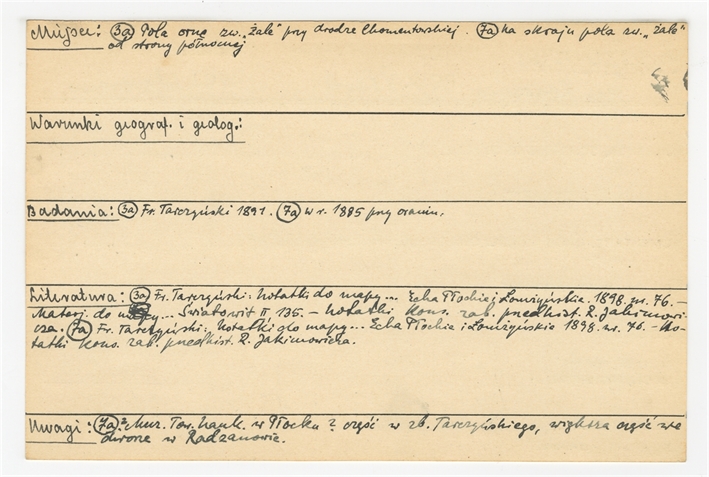 Miejsce: (3a) Pola orne zw. „Żale" przy drodze Chomentowskiej. (7a) Na skraju pola zw. „Żale"
od strony północnej
Warunki geograf. i geolog.:
Badania: (3a) Fr. Tarczyński 1891. (7a) w r. 1885 przy oraniu.
Literatura: (3a) Fr. Tarczyński: Notatki do mapy... Echa Płockie i Łomżyńskie. 1898. nr. 76. –
Materj. do mapy... Światowit II 135. – Notatki kons. zab. przedhist. R. Jakimowi-
cza. (7a) Fr. Tarczyński: Notatki do mapy... Echa Płockie i Łomżyńskie 1898. nr. 76. – No-
tatki kons. zab. przedhist. R. Jakimowicza.
Uwagi: (7a) Muz. Tow. Nauk. w Płocku ? część w zb. Tarczyńskiego, większa część we
dworze w Radzanowie.